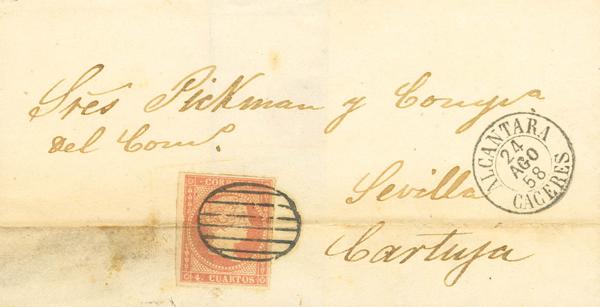 Sres Pickman y Compa.
del Como.
Sevilla
Cartuja
ALCANTARA
24
AGO
58
CACERES
CORREOS
4. CUARTOS